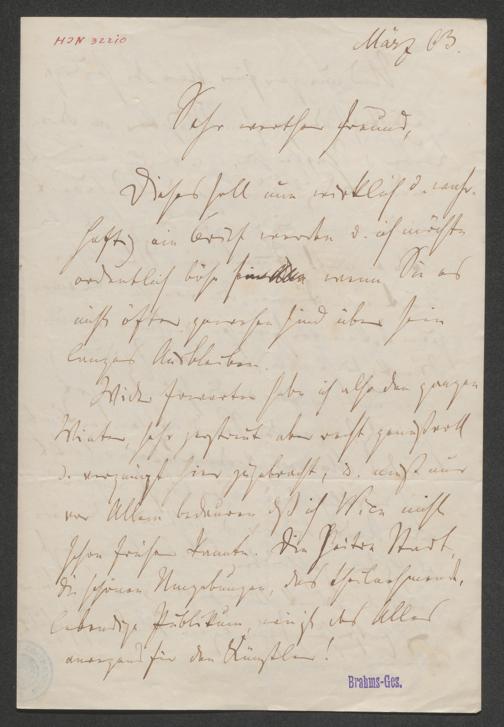 HJN 32210
März 63.
Sehr werther Freund,
Dieses soll nun wirklich u. wahr-
haftig ein Brief werden u. ich möchte
ordentlich böse sein wenn Sie es
nicht öfter gewesen sind über sein
langes Ausbleiben.
Wider Erwarten habe ich also den ganzen
Winter, sehr zerstreut aber recht genußvoll
u. vergnügt hier zugebracht, u. muß nur
vor Allem bedauern daß ich Wien nicht
schon früher kannte. Die heitre Stadt,
die schönen Umgebungen, das theilnehmende,
lebendige Publikum, wie ist das Alles
anregend für den Künstler!
Brahms-Ges.